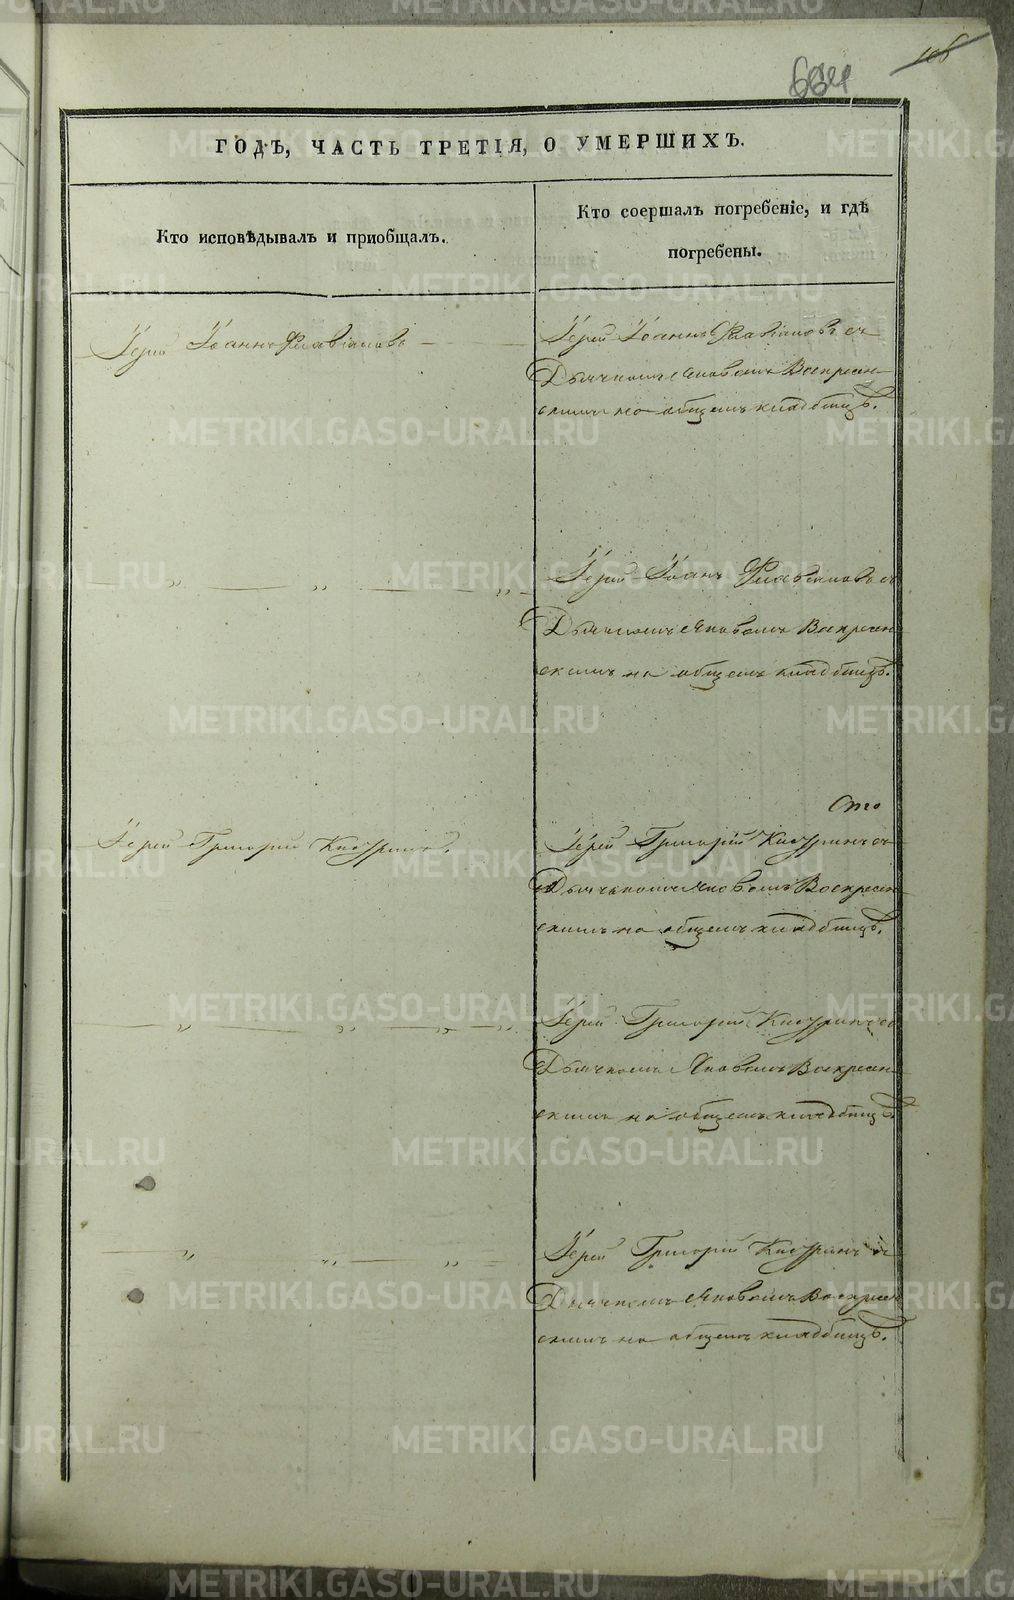 664
106
ГОДЪ, ЧАСТЬ ТРЕТІЯ, О УМЕРШИХЪ.
Кто исповѣдывалъ и пріобщалъ.
Кто соершалъ погребеніе, и гдѣ
погребены.
Іерей Іоаннъ Флавіановъ —
Іерей Іоаннъ Флавіановъ съ
Дьячкомъ Яковомъ Воскресен-
скимъ на общемъ кладбищѣ.
— „ — „ — „ —
Іерей Іоанъ Флавіановъ съ
Дьячкомъ Яковомъ Воскресен-
скимъ на общемъ кладбищѣ.
Іерей Григорій
Іерей Григорій съ
Дьячкомъ Яковомъ Воскресен-
скимъ на общемъ кладбищѣ.
— „ — „ — „ — „
Іерей Григорій съ
Дьячкомъ Яковомъ Воскресен-
скимъ на общемъ кладбищѣ.
— „ — „ — „ —
Іерей Григорій съ
Дьячкомъ Яковомъ Воскресен-
скимъ на общемъ кладбищѣ.
METRIKI.GASO-URAL.RU